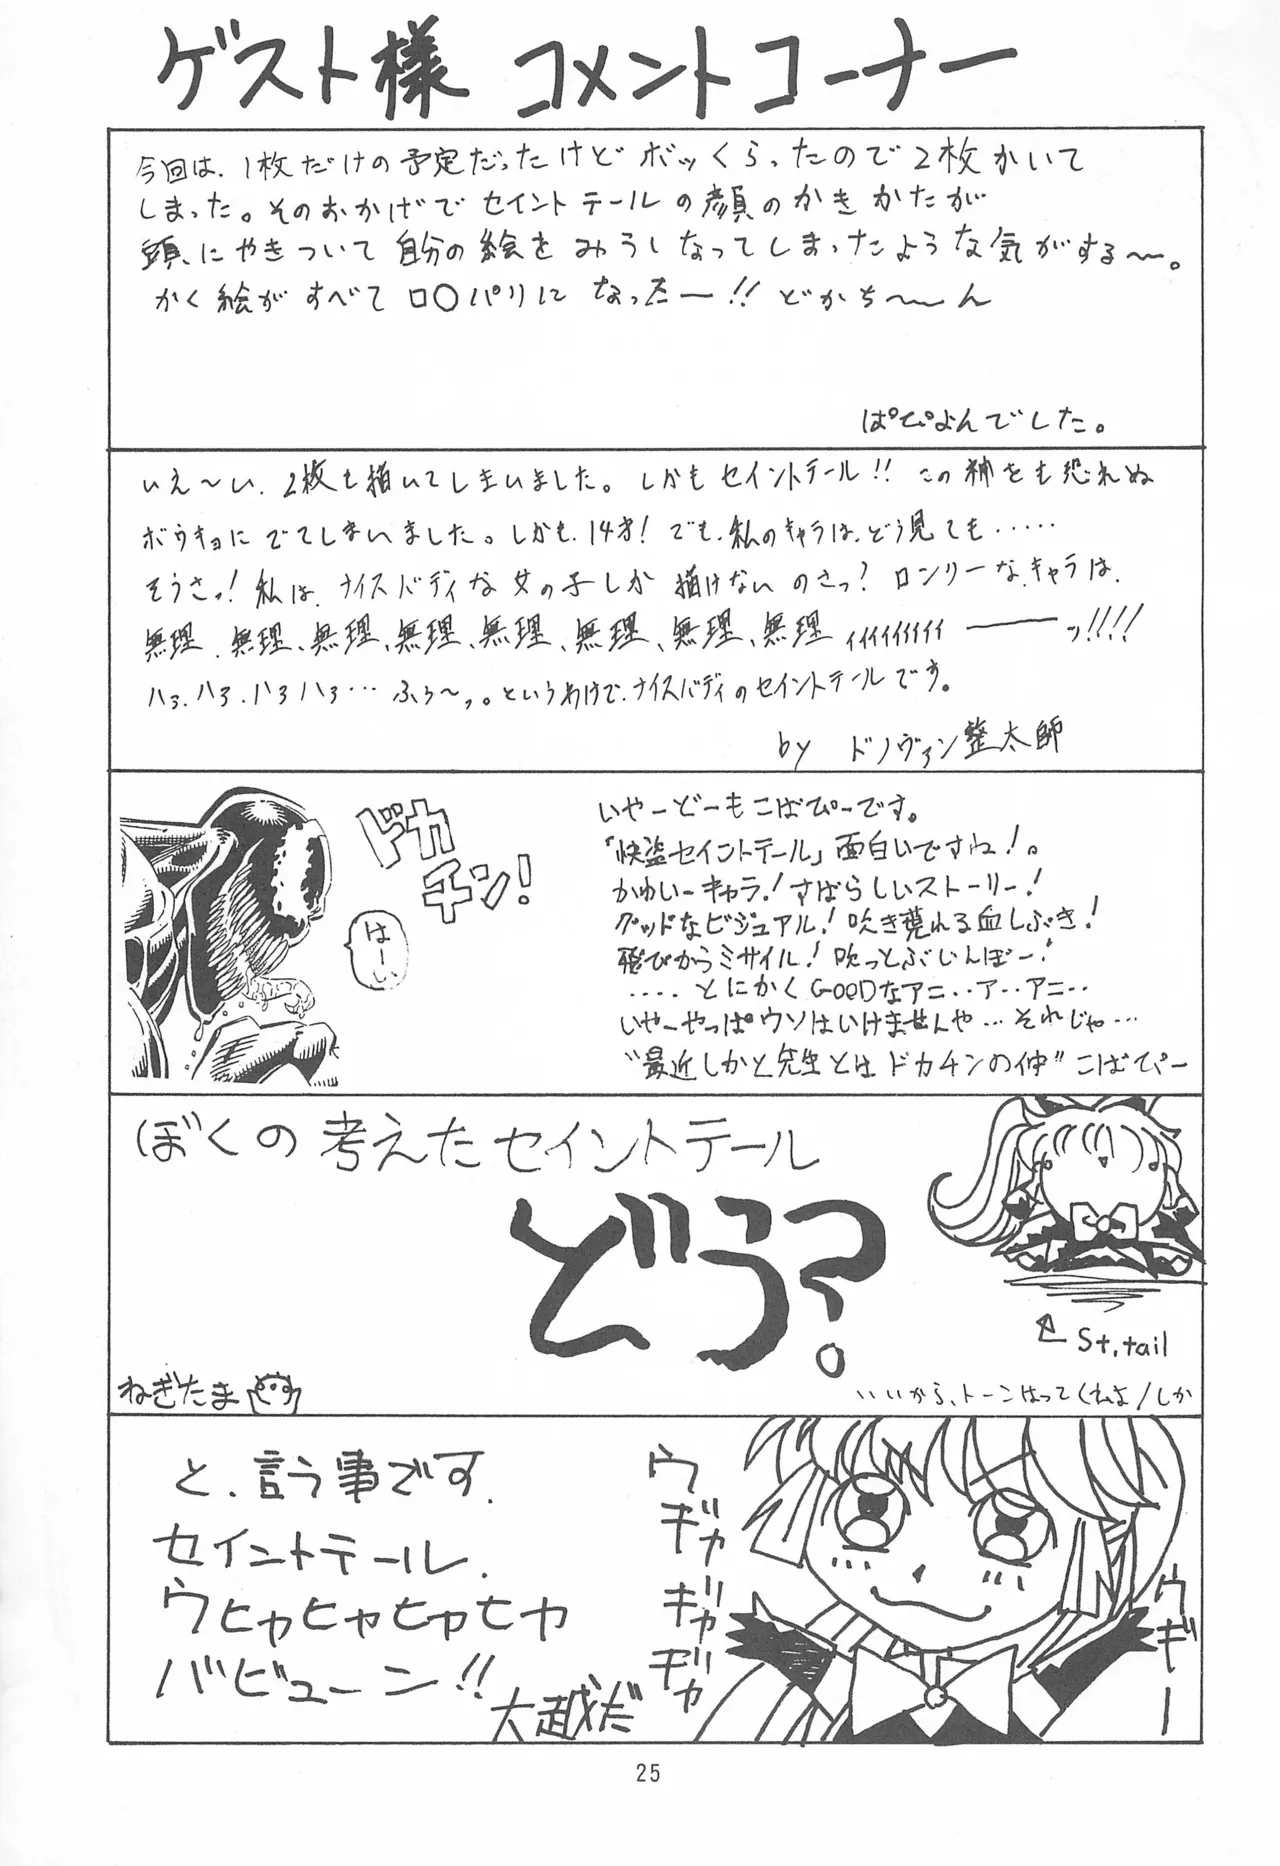 ゲスト様 コメントコーナー
今回は、1枚だけの予定だったけどボッくらったので2枚かいて
しまった。そのおかげでセイントテールの顔のかきかたが
頭にやきついて自分の絵をみうしなってしまったような気がする〜。
かく絵がすべてロ〇パリになったー!! どかち〜ん
ぱぴよんでした。
いえ〜い、2枚も描いてしまいました。しかもセイントテール!! この神をも恐れぬ
ボウキョにでてしまいました。しかも、14才! でも、私のキャラは、どう見ても……
そうさっ! 私は、ナイスバディな女の子しか描けないのさっ? ロンリーなキャラは、
無理、無理、無理、無理、無理、無理、無理、無理ィィィィィィィィ――ッ!!!!
ハァ、ハァ、ハァハァ… ふぅ〜っ。というわけで、ナイスバディのセイントテールです。
by ドノヴァン整太師
ドカチン!
はーい
いやーどーもこばぴーです。
「快盗セイントテール」面白いですね!。
かわいーキャラ! すばらしいストーリー!
グッドなビジュアル! 吹き荒れる血しぶき!
飛びかうミサイル! 吹っとぶじんぼー!
....とにかくGOODなアニ..ア..アニ..
いやーやっぱウソはいけませんや…それじゃ…
"最近しかと先生とはドカチンの仲" こばぴー
ぼくの考えたセイントテール
どう?
St.tail
ねぎたま
いいから、トーンはってくれよ/しか
と、言う事です.
セイントテール.
ウヒャヒャヒャヒャ
バビューン!!
大越だ
ウギャギャギャ
ウギー
25